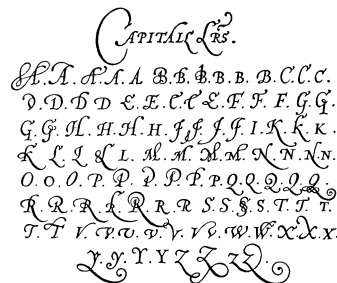 Capitall Lrs.
A. A. A. A. A B. B. B. B. B. B. C. C. C.
D. D. D. D E. E. C. E. E. F. F. F. G. G.
G. G. H. H. H. H. J. J. J. J. I. K. K. K.
K L. L. L L. M. M. M. M. N. N. N. N.
O. O. O. P. P. P. P. P. P. Q. Q. Q. Q. Q.
R. R. R. R. R. R. R S. S. S. S. T. T. T.
T. T V. V. V. V. V. V. V. W. W. X. X. X.
Y. Y. Y. Y Z Z. Z Z.